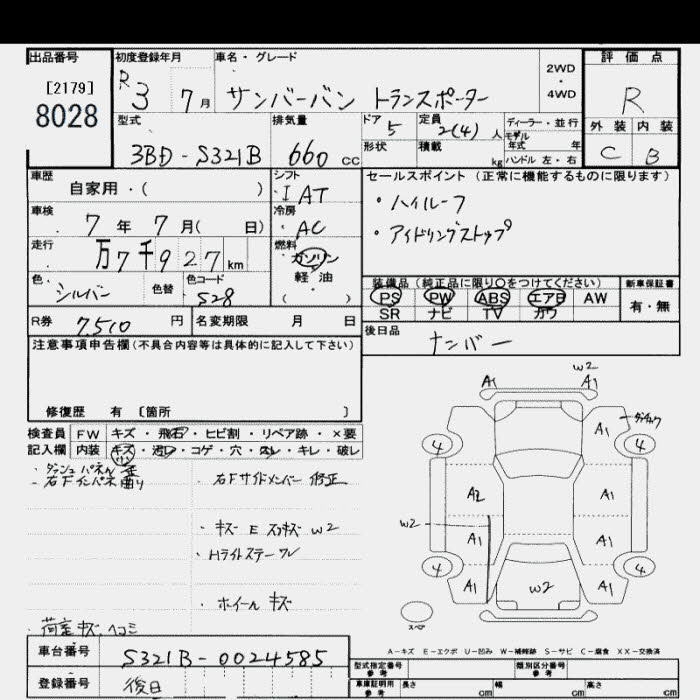 出品番号 初度登録年月 車名・グレード 2WD・4WD 評価点
[2179]
8028
R3 7月 サンバーバン トランスポーター R
型式 排気量 ドア 定員 ディーラー・並行 外装 内装
3BD-S321B 660cc 5 2(4)人 モデル年式 年 C B
形状 積載 kg ハンドル 左・右
車歴 シフト セールスポイント (正常に機能するものに限ります)
自家用・( ) I AT ・ハイルーフ
車検 冷房
7年 7月( 日) AC ・アイドリングストップ
走行 燃料
万7千927km ガソリン
色 色替 色コード 軽・油 装備品 (純正品に限り○をつけてください) 新車保証書
シルバー S28 ( ) PS PW ABS エアB AW 有・無
R券 7510円 名変期限 月 日 SR ナビ TV カワ
後日品 ナンバー
注意事項申告欄 (不具合内容等は具体的に記入して下さい)
修復歴 有 〔箇所 〕
検査員 FW キズ・飛石・ヒビ割・リペア跡・×要
記入欄 内装 キズ・汚レ・コゲ・穴・スレ・キレ・破レ
・ダッシュパネル 歪
・右Fインパネ 曲り ・右Fサイドメンバー 修正
・キズ E スリキズ W2
・Hライトステー ワレ
・ホイール キズ
・荷室キズ、ヘコミ
A1 W2 A1
A1
4 4
A2 A1
W2 A1 A1
4 4
A1 W2 A1
スペア
A-キズ E-エクボ U-凹み W-補修跡 S-サビ C-腐食 XX-交換済
車台番号 S321B-0024585
登録番号 後日
型式指定番号 参考 類別区分番号 参考
車庫証明用 参考 長さ cm 幅 cm 高さ cm